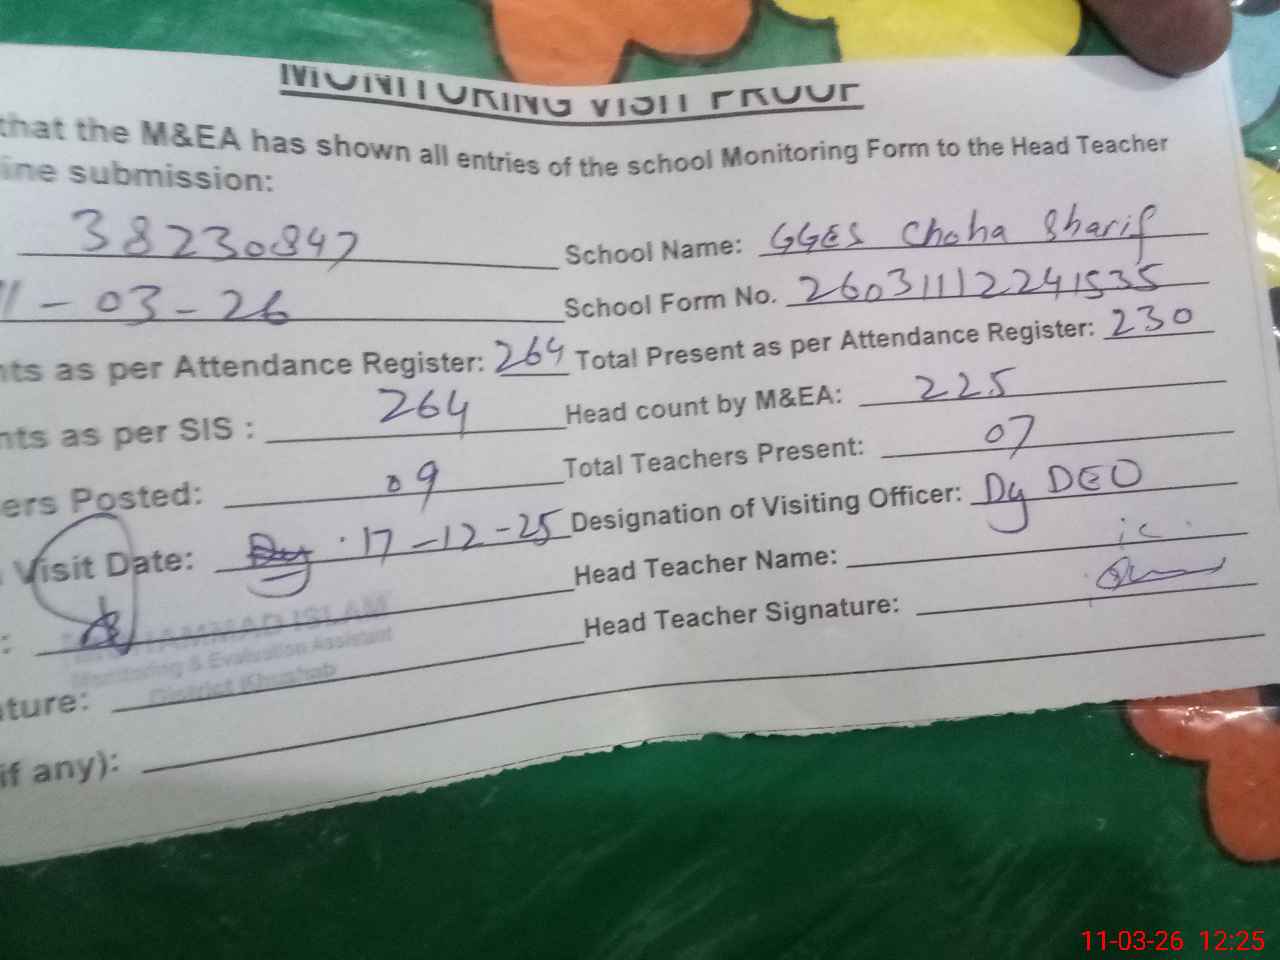 MONITORING VISIT PROOF
that the M&EA has shown all entries of the school Monitoring Form to the Head Teacher
line submission:
38230847 School Name: GGES Choha Sharif
11-03-26 School Form No. 260311112241535
nts as per Attendance Register: 264 Total Present as per Attendance Register: 230
nts as per SIS : 264 Head count by M&EA: 225
ers Posted: 09 Total Teachers Present: 07
Visit Date: 17-12-25 Designation of Visiting Officer: Dy DEO
Head Teacher Name: ic
: Head Teacher Signature:
MUHAMMAD ISLAM
Monitoring & Evaluation Assistant
District Khushab
ture:
if any):
11-03-26 12:25